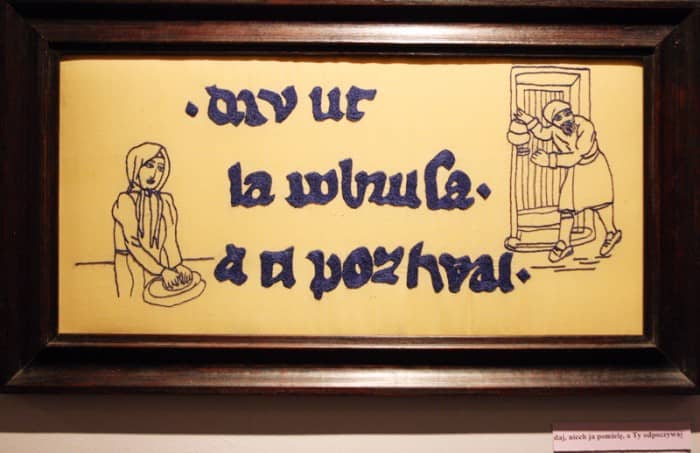 · day ut
ia pobruſa ·
a ti poziwai ·
daj, niech ja pomielę, a Ty odpoczywaj